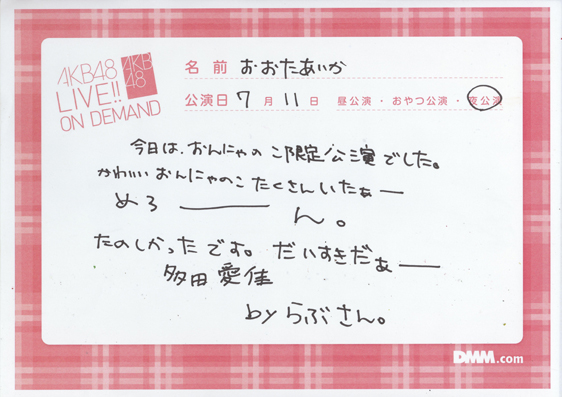 AKB48
LIVE!!
ON DEMAND
AKB
48
名前 おおたあいか
公演日 7月11日 昼公演・おやつ公演・夜公演
今日は、おんにゃのこ限定公演でした。
かわいい おんにゃのこ たくさんいたぁー
めろ ――― ん。
たのしかったです。だいすきだぁー
多田愛佳
by らぶさん。
DMM.com